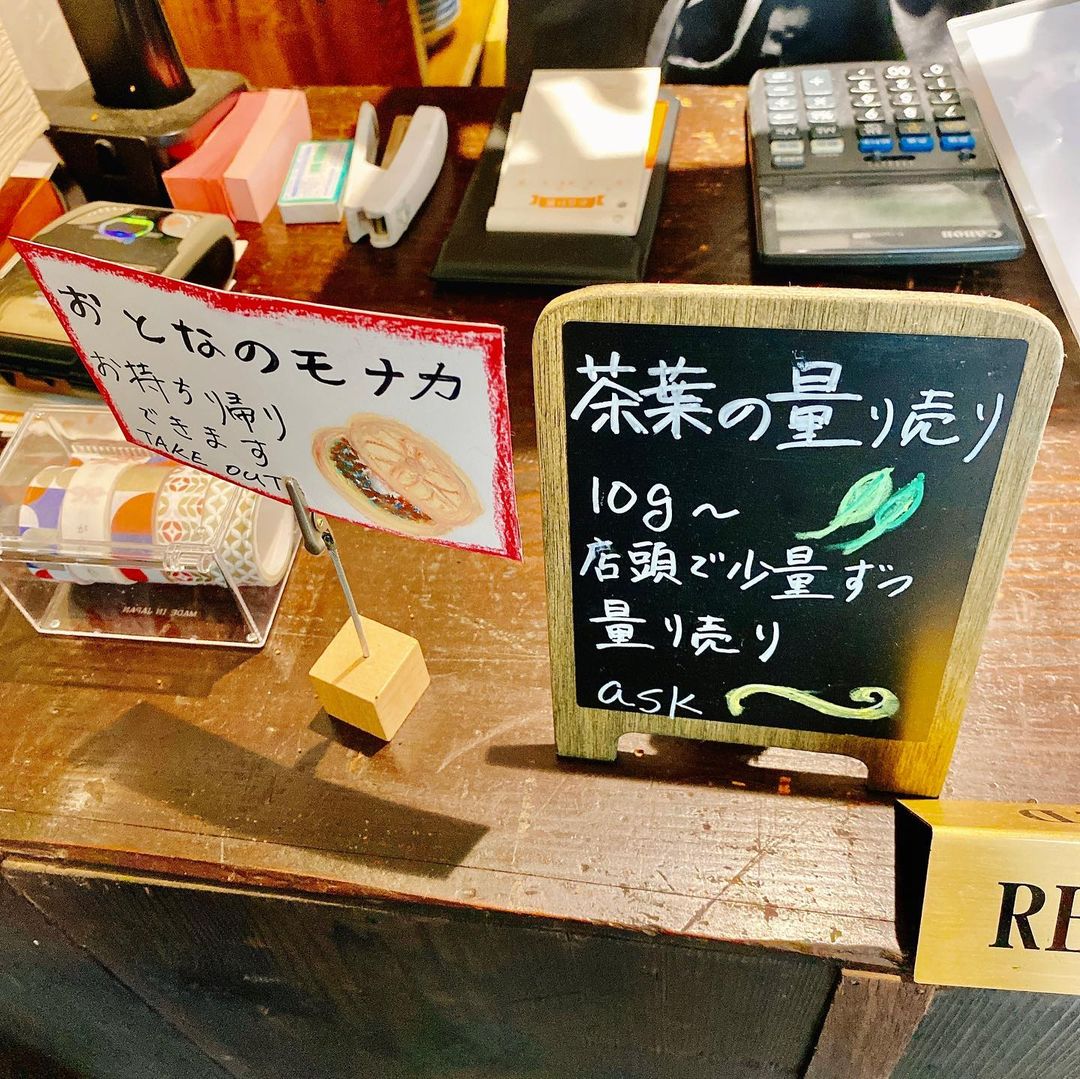 おとなのモナカ
お持ち帰り
できます
TAKE OUT
茶葉の量り売り
10g～
店頭で少量ずつ
量り売り
ask
Canon
MADE IN JAPAN
RE